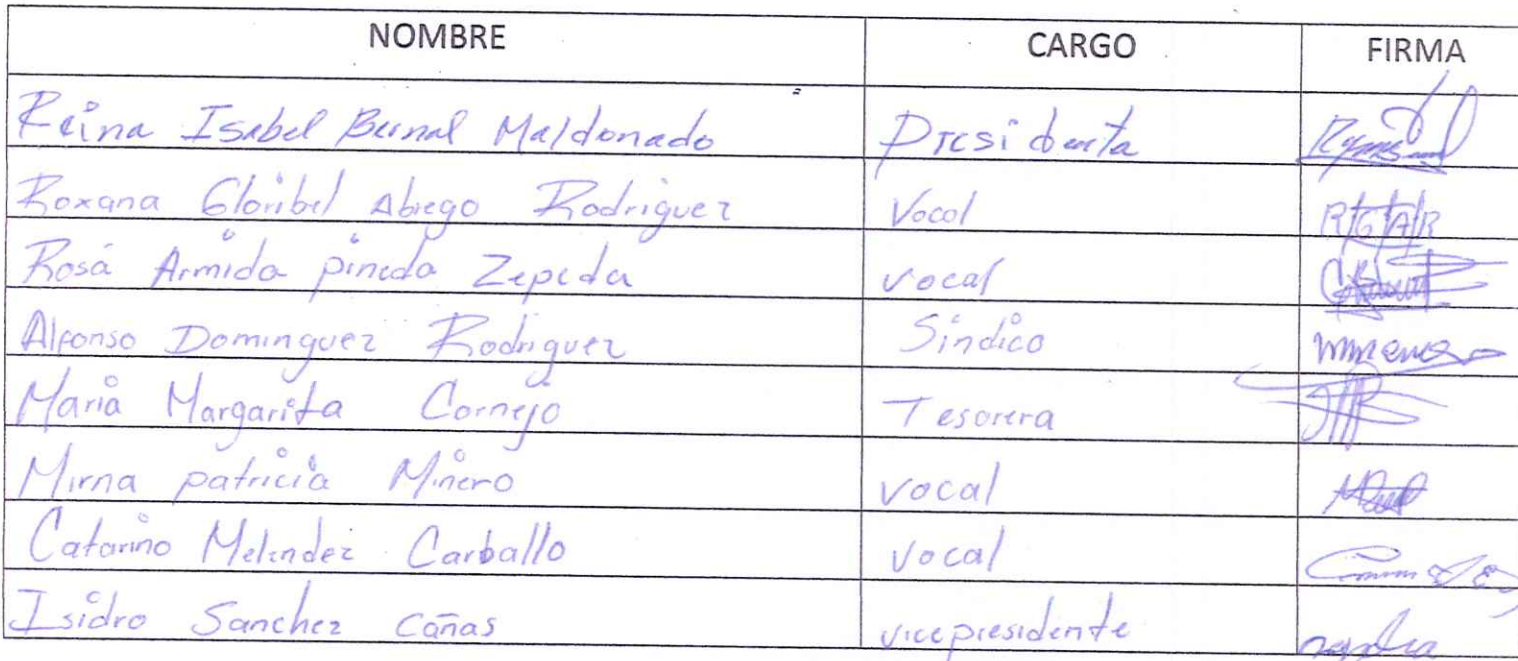 NOMBRE CARGO FIRMA
Reina Isabel Bernal Maldonado Presidenta
Roxana Gloribel Abrego Rodriguez Vocal R/G/A/R
Rosa Armida pineda Zepeda vocal
Alfonso Dominguez Rodriguez Sindico
Maria Margarita Cornejo Tesorera
Mirna patricia Minero vocal
Catarino Melendez Carballo Vocal
Isidro Sanchez Cañas vicepresidente